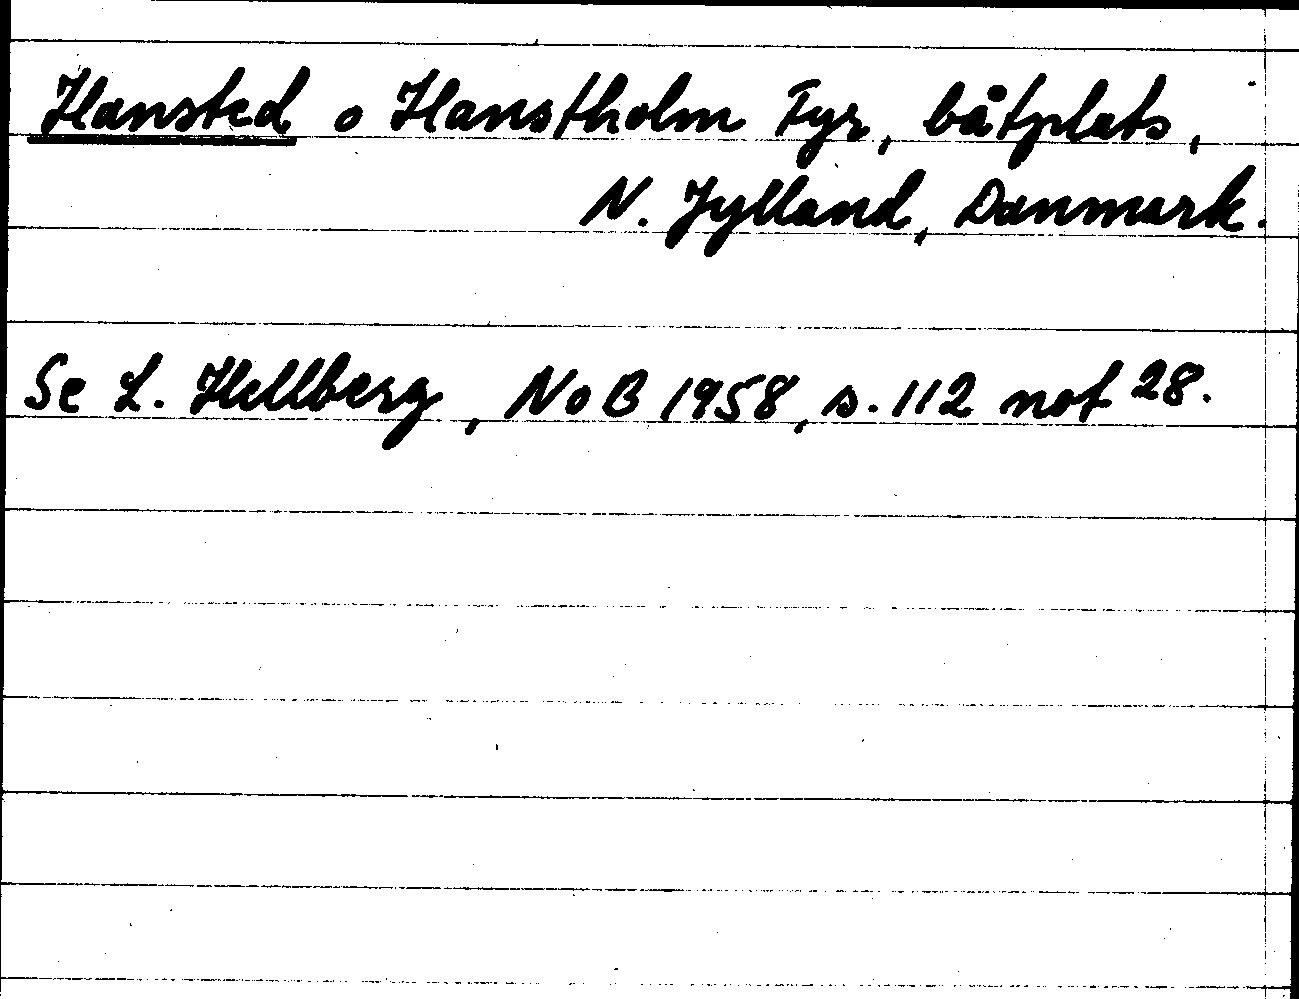 Hansted o Hanstholm Fyr, båtplats,
N. Jylland, Danmark.
Se L. Hellberg, NoB 1958, s. 112 not 28.